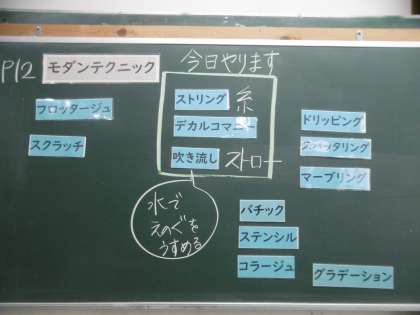 P12 モダンテクニック
今日やります
フロッタージュ
スクラッチ
ストリング 糸
デカルコマニー
吹き流し ストロー
水で
えのぐを
うすめる
ドリッピング
スパッタリング
マーブリング
バチック
ステンシル
コラージュ
グラデーション